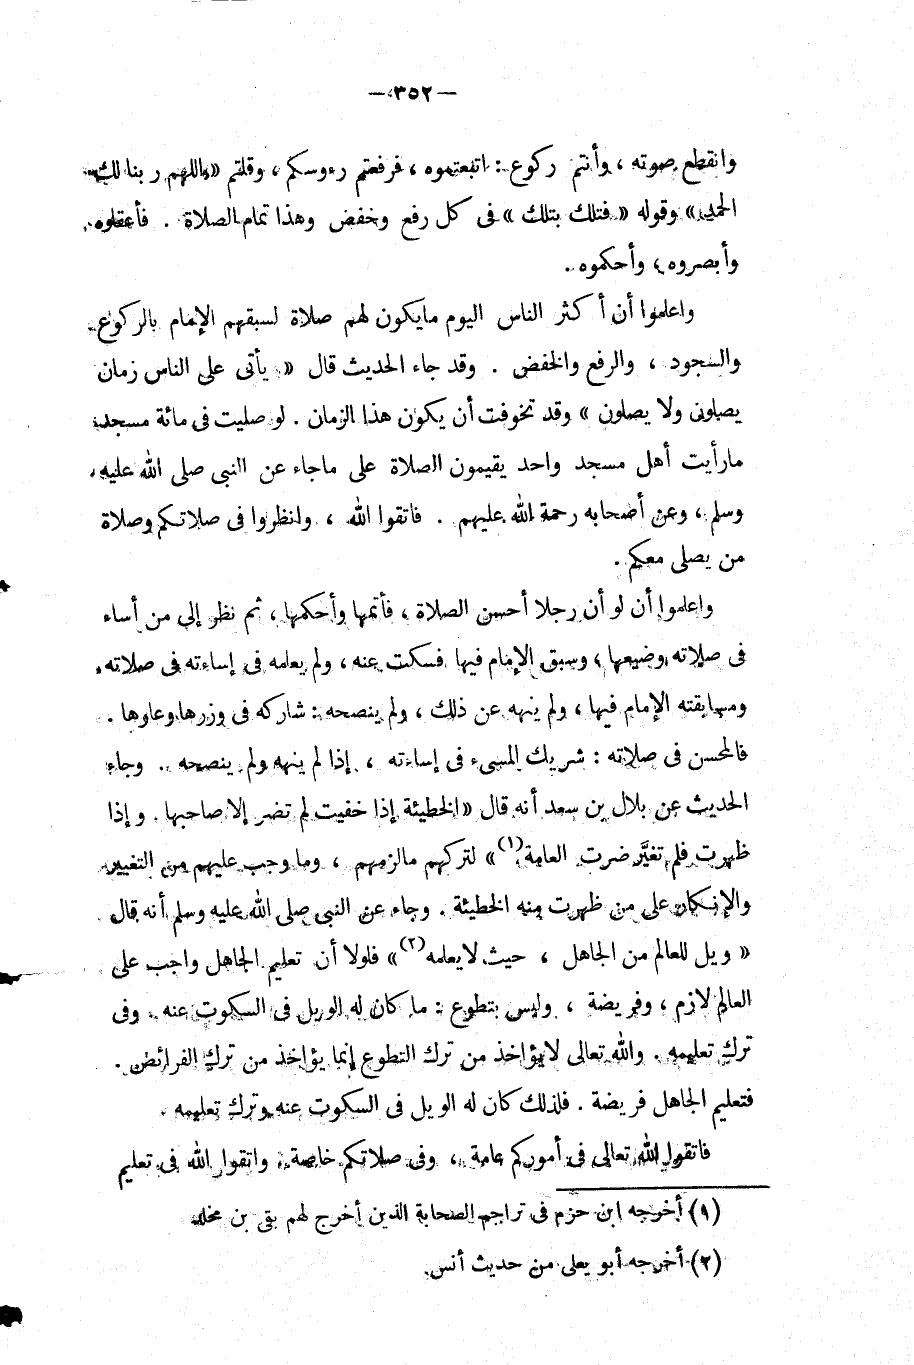 — ٣٥٢ —
وانقطع صوته ، وأنتم ركوع : اتبعتموه ، فرفعتم رءوسكم ، وقلتم « اللهم ربنا لك
الحمد » وقوله « فتلك بتلك » فى كل رفع وخفض وهذا تمام الصلاة . فأعقلوه
وأبصروه ، وأحكموه .
واعلموا أن أكثر الناس اليوم مايكون لهم صلاة لسبقهم الإمام بالركوع
والسجود ، والرفع والخفض . وقد جاء الحديث قال « يأتى على الناس زمان
يصلون ولا يصلون » وقد تخوفت أن يكون هذا الزمان . لو صليت فى مائة مسجد
مارأيت أهل مسجد واحد يقيمون الصلاة على ماجاء عن النبى صلى الله عليه
وسلم ، وعن أصحابه رحمة الله عليهم . فاتقوا الله ، وانظروا فى صلاتكم وصلاة
من يصلى معكم .
واعلموا أن لو أن رجلا أحسن الصلاة ، فأتمها وأحكمها ، ثم نظر إلى من أساء
فى صلاته وضيعها ، وسبق الإمام فيها فسكت عنه ، ولم يعلمه فى إساءته فى صلاته
ومسابقته الإمام فيها ، ولم ينهه عن ذلك ، ولم ينصحه : شاركه فى وزرها وعارها .
فالمحسن فى صلاته : شريك المسىء فى إساءته ، إذا لم ينهه ولم ينصحه . وجاء
الحديث عن بلال بن سعد أنه قال « الخطيئة إذا خفيت لم تضر إلا صاحبها . وإذا
ظهرت فلم تغيَّر ضرت العامة (١) » لتركهم مالزمهم ، وما وجب عليهم من التغيير
والإنكار على من ظهرت منه الخطيئة . وجاء عن النبى صلى الله عليه وسلم أنه قال
« ويل للعالم من الجاهل ، حيث لايعلمه (٢) » فلولا أن تعليم الجاهل واجب على
العالم لازم ، وفريضة ، وليس بتطوع : ما كان له الويل فى السكوت عنه . وفى
ترك تعليمه . والله تعالى لايؤاخذ من ترك التطوع إنما يؤاخذ من ترك الفرائض .
فتعليم الجاهل فريضة . فلذلك كان له الويل فى السكوت عنه وترك تعليمه .
فاتقوا الله تعالى فى أموركم عامة ، وفى صلاتكم خاصة ، واتقوا الله فى تعليم
(١) أخرجه ابن حزم فى تراجم الصحابة الذين أخرج لهم بقى بن مخلد
(٢) أخرجه أبو يعلى من حديث أنس .